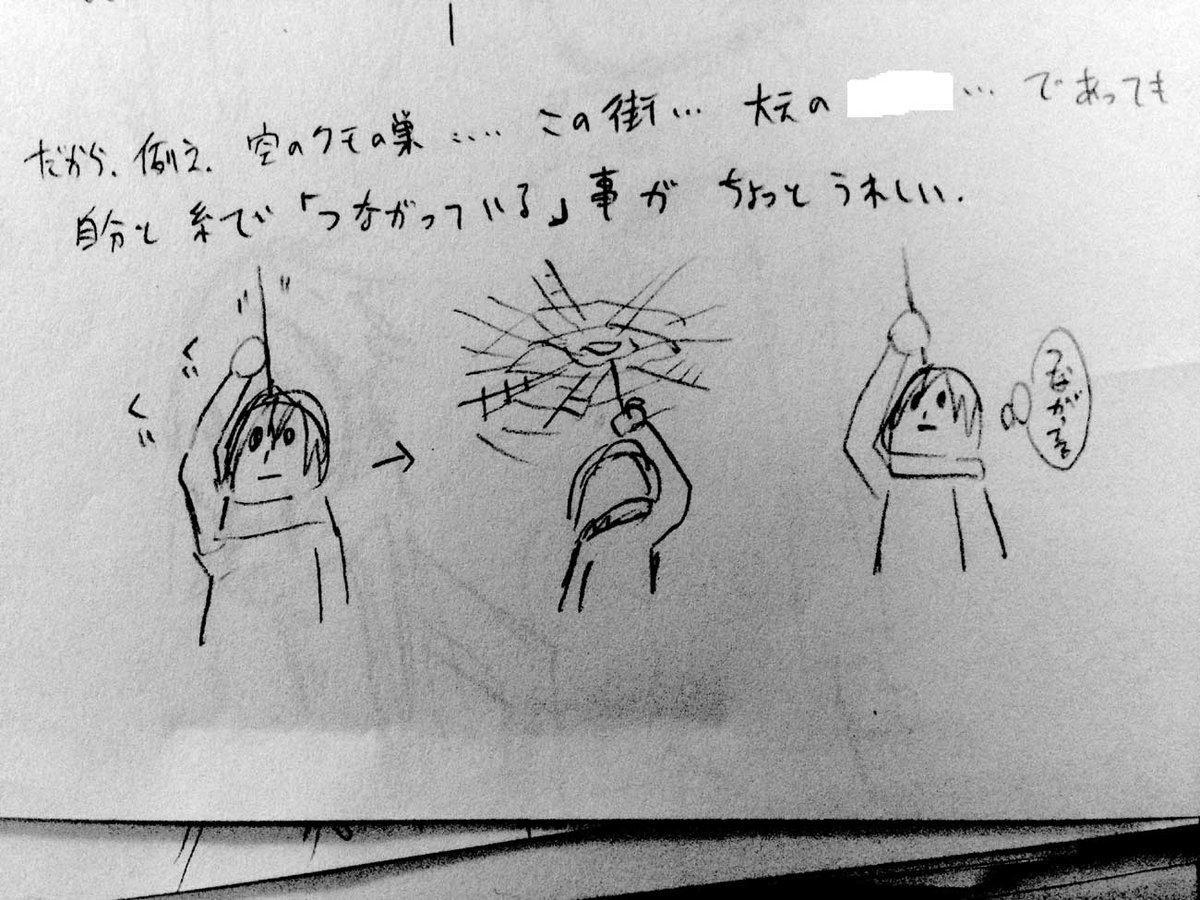 だから、例え、空のクモの巣‥‥ この街… 大元の … であっても
自分と糸で「つながっている」事が ちょっとうれしい.